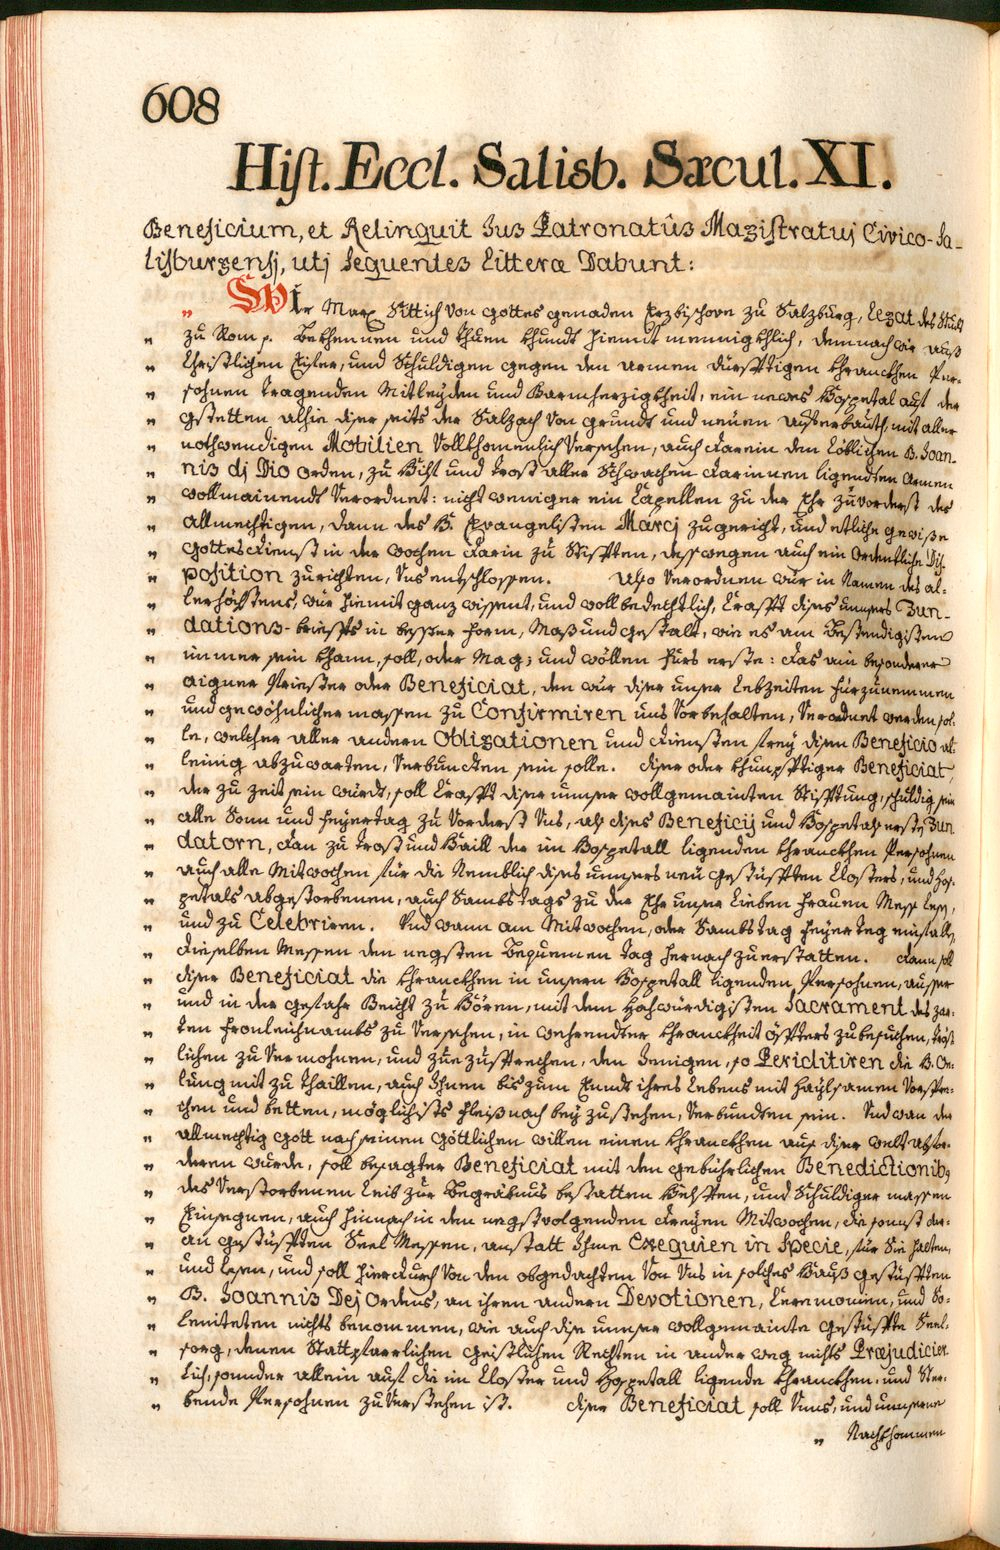 608
Hist. Eccl. Salisb. Sæcul. XI.
Beneficium, et Relinquit Jus Patronatûs Magistratuj Civico-Sa-
lisburgensj, utj sequentes Litteræ Dabunt:
„ Wir Marx Sittich von Gottes genaden Erzbischove zu Salzburg, Legat des Stuls
„ zu Rom p. Bekhennen und thuen khundt hiemit mennigkhlich, demnach wir auß
„ Christlichen Eyfer, und Schuldigen gegen den armen dürfftigen khranckhen Per-
„ sohnen tragenden Mitleyden und Barmherzigkheit, ein neues Hospetal auf der
„ gstetten alhie diser seits der Salzach von grundt und neuen aufferbauth, mit aller
„ nothwendigen Mobilien Vollkhomenlich Versehen, auch darein den Löblichen B. Joan-
„ nis dj Dio orden, zu Hilf und trost aller Schwachen darinnen ligendten Armen
„ wollmainendt Verordnet: nicht weniger ein Capellen zu der Ehr zuvorderst des
„ Allmechtigen, dann des H. Evangelisten Marcj zugericht, und etliche gewiße
„ Gottesdienst in der wochen darin zu Stifften, desswegen auch ein Ordentliche Dis-
„ position zurichten, Uns entschlossen. Also Verordnen wür in Namen des al-
„ lerhöchstens, wür hiemit ganz wissent, und wollbedechtlich, Crafft dises unnsers Fun-
„ dations-brieffs in bester form, Maß und gestalt, wie es am Bestendigisten
„ immer sein khann, soll, oder Mag; und wöllen fürs erste: das ain besonderer
„ aigner Priester oder Beneficiat, den wür diser unser Lebzeiten fürzunemmen
„ und gewöhnlicher massen zu Confirmiren uns Vorbehalten, Verordnet werden sol-
„ le, welcher aller andern Obligationen und diensten frey disen Beneficio al-
„ leinig abzuwarten, Verbundten sein solle. diser oder khunfftiger Beneficiat,
„ der zu Zeit sein würdt, soll Crafft diser unnser wollgemainten Stifftung, schuldig sein
„ alle Sonn und feyertag zu Vorderst Uns, als dises Beneficij und Hospetals ersten Fun
„ datorn, dan zu trost und Haill der im Hospetall ligenden khranckhen Persohnen
„ auch alle Mitwochen für die Nemblich dises unnsers neu gestüfften Closters, und Hos-
„ petals abgestorbenen, auch Sambstags zu der Ehr unser Lieben Frauen Mess Lesen,
„ und zu Celebriren. Und wann am Mitwochen, oder Sambstag feyertag einfallen,
„ dieselben Messen den negsten Bequemen tag hernach zuerstatten. dann soll
„ diser Beneficiat die khranckhen in unsern Hospetall ligenden Persohnen, ausser
„ und in der gefahr Beicht zu Hören, mit dem Hochwürdigisten Sacrament des zar-
„ ten fronleichnambs zu Versehen, in wehrendter khranckheit öffters zubesuchen, tröst-
„ lichen zu Vermohnen, und zuezusprechen, den Jenigen, so Periclitiren die H. Oe-
„ lung mit zu thaillen, auch Ihnen bis zum Enndt ihres Lebens mit haylsamen Vorspre-
„ chen und betten, möglichists fleiß nach bey zustehen, Verbundten sein. Und wan der
„ allmechtig Gott nach seinen göttlichen willen einen khranckhen aus diser welt abfor-
„ deren wurde, soll besagter Beneficiat mit den gebührlichen Benedictionibus
„ des Verstorbenen Leib zur Begräbnus bestatten helffen, und Schuldiger massen
„ Einsegnen, auch hinnach in den negstvolgenden dreyen Mitwochen, die sonst dar-
„ an gestüfften Seel Messen, anstatt Ihme Exequien in Specie, für Sie halten,
„ und lesen, und soll hierdurch Von den obgedachten Von Uns in solches Hauß gestüfften
„ B. Joannis Dej Ordens, an ihren andern Devotionen, Ceremonien, und So-
„ leniteten nichts benommen, wie auch dise unnser wollgemainte gestüffte Seel-
„ sorg, denen Stattpfarrlichen geistlichen Rechten in ander weg nichts Præjudicier
„ lich, sonnder allein auf die im Closter und Hospetall ligende khranckhen, und Ster-
„ bende Persohnen zuverstehen ist. diser Beneficiat soll Uns, und unnserne
„ Nachkhommen